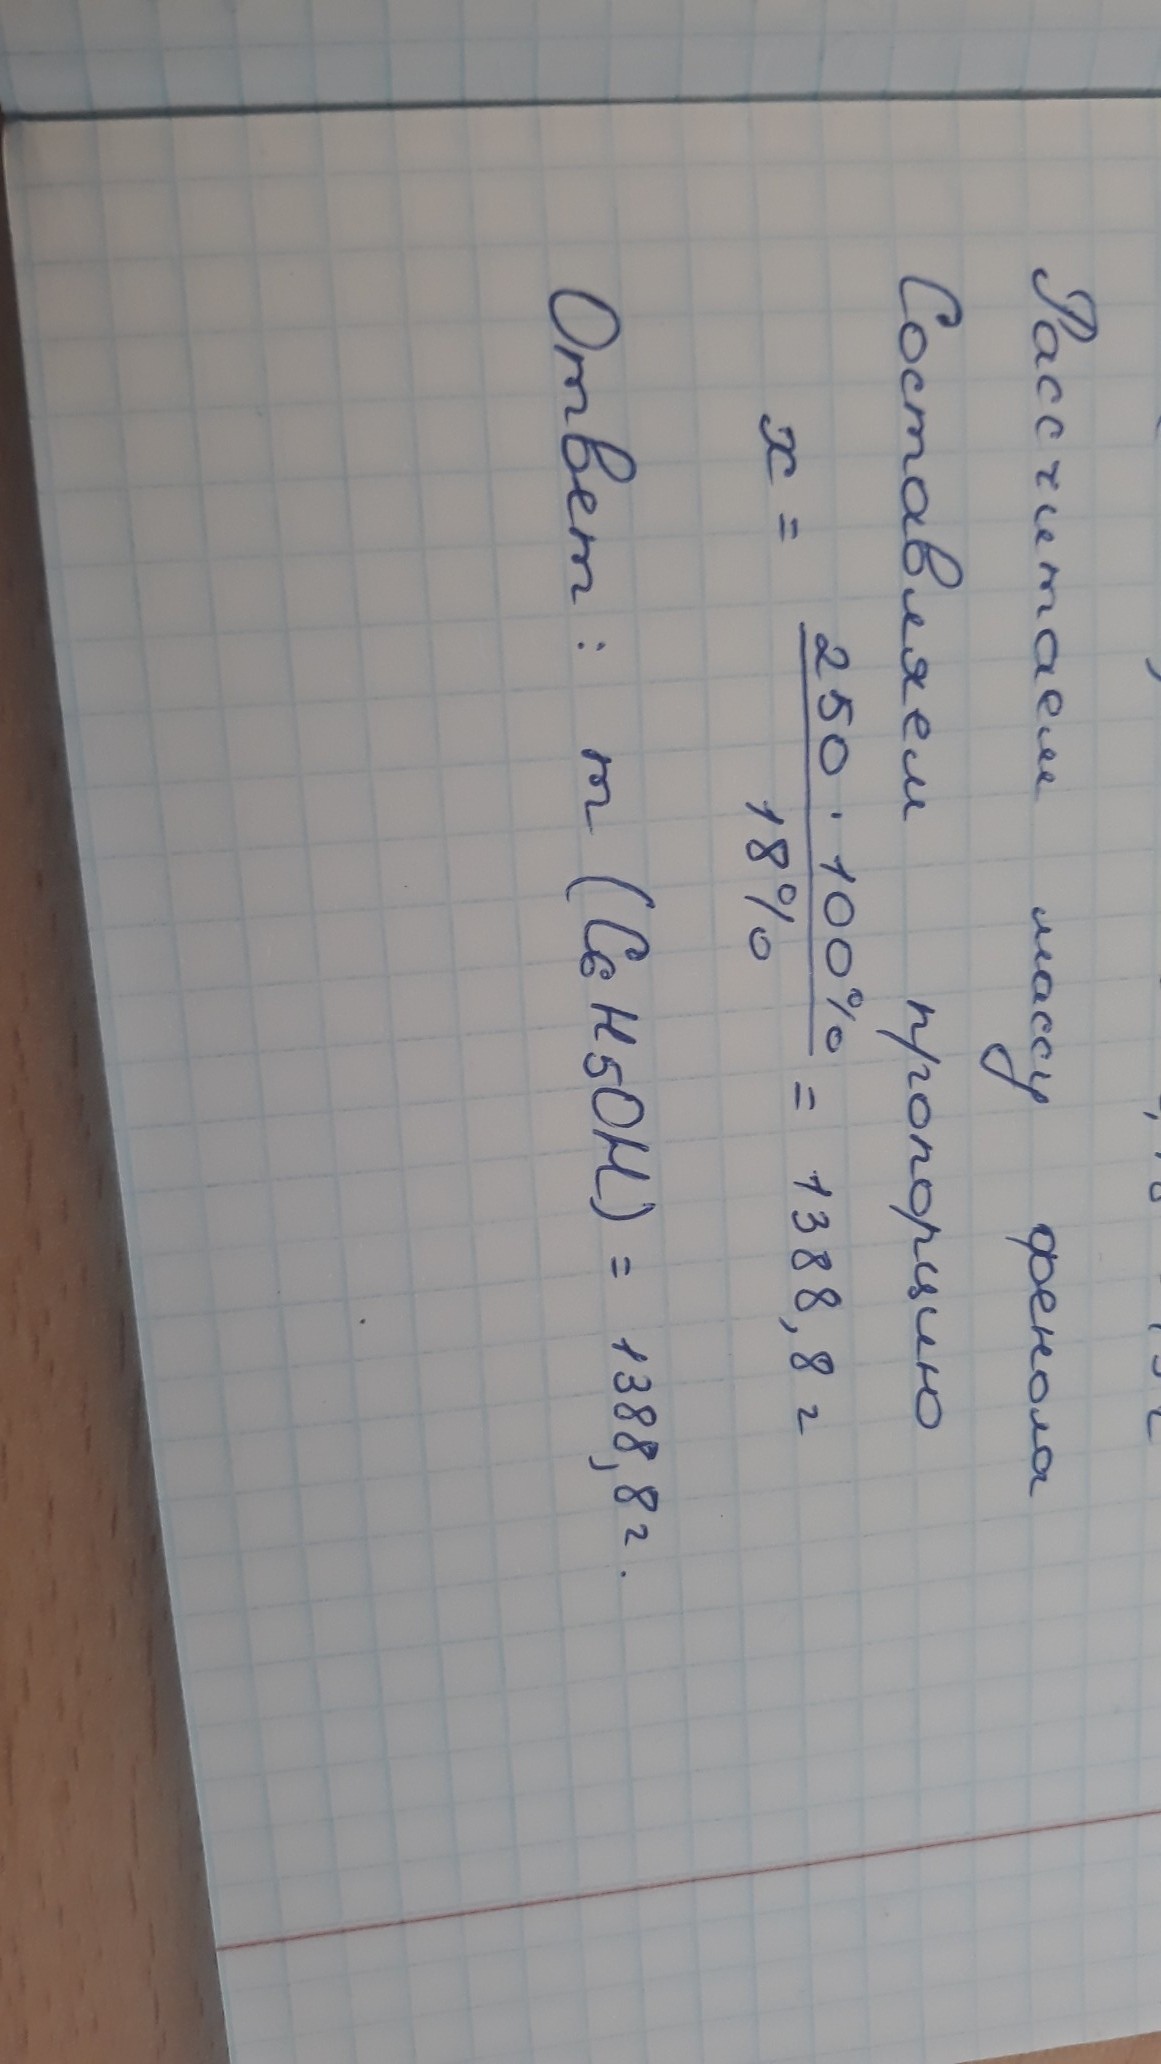 Рассчитаем массу фенола
Составляем пропорцию
x = 250 · 100% / 18% = 1388,8 г
Ответ: m (C6H5OH) = 1388,8 г.